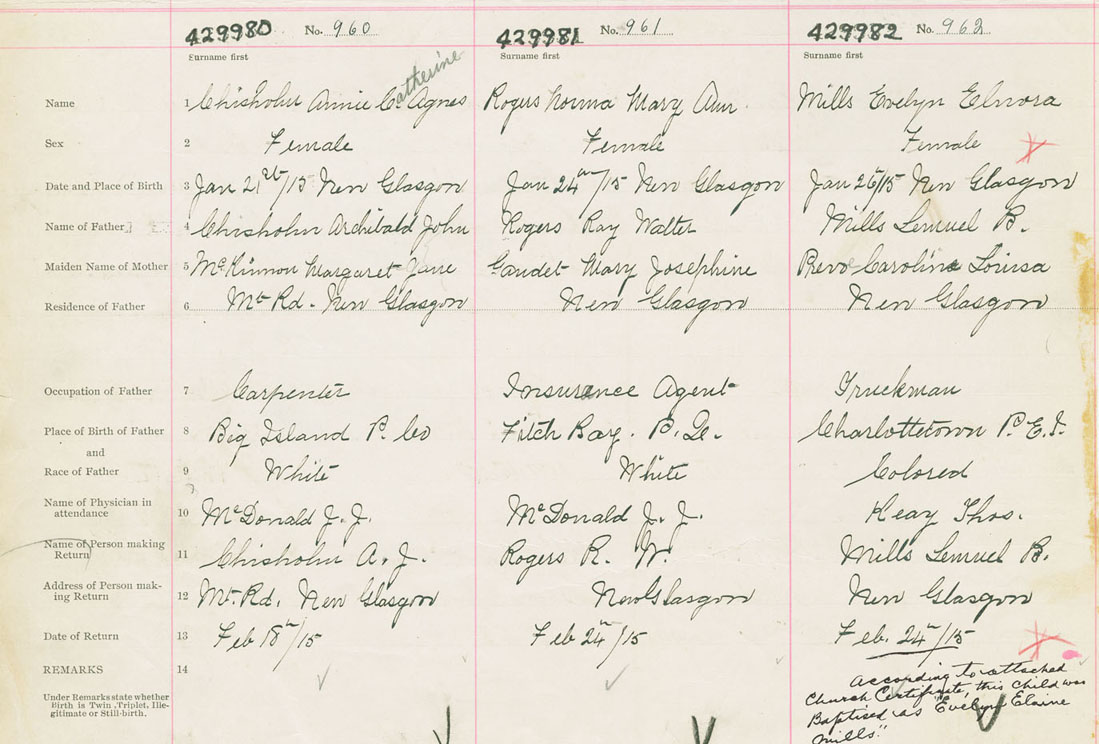 429980 No. 960 429981 No. 961 429982 No. 962
Surname first Surname first Surname first
Catherine
Name 1 Chisholm Annie C. Agnes Rogers Norma Mary Ann. Mills Evelyn Elnora
Sex 2 Female Female Female
Date and Place of Birth 3 Jan 21st/15 New Glasgow Jan 24th/15 New Glasgow Jan 26/15 New Glasgow
Name of Father 4 Chisholm Archibald John Rogers Ray Walter Mills Lemuel B.
Maiden Name of Mother 5 McKinnon Margaret Jane Gaudet Mary Josephine Caroline Louisa
Residence of Father 6 Mt Rd. New Glasgow New Glasgow New Glasgow
Occupation of Father 7 Carpenter Insurance Agent Truckman
Place of Birth of Father 8 Big Island P. Co Fitch Bay. P.Q. Charlottetown P.E.I.
and
Race of Father 9 White White Colored
Name of Physician in
attendance 10 McDonald J. J. McDonald J. J. Keay Thos.
Name of Person making
Return 11 Chisholm A. J. Rogers R. W. Mills Lemuel B.
Address of Person mak-
ing Return 12 Mt. Rd. New Glasgow New Glasgow New Glasgow
Date of Return 13 Feb 18th/15 Feb 24th/15 Feb. 24th/15
REMARKS 14
Under Remarks state whether
Birth is Twin, Triplet, Ille-
gitimate or Still-birth.
According to attached
Church Certificate, this child was
Baptised as "Evelyn Elaine
Mills."